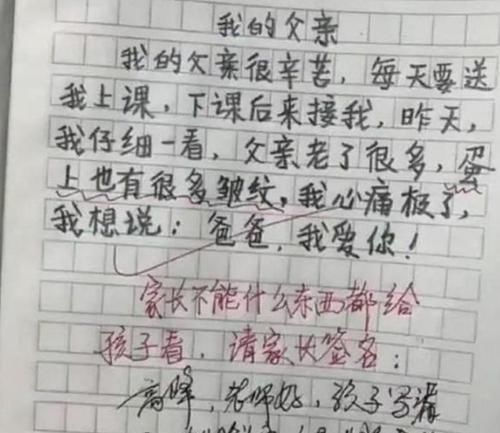 我的父亲
我的父亲很辛苦,每天要送
我上课,下课后来接我,昨天,
我仔细一看,父亲老了很多,蛋
上也有很多皱纹,我心痛极了,
我想说:爸爸,我爱你!
家长不能什么东西都给
孩子看,请家长签名:
高峰,老师好,孩子写错